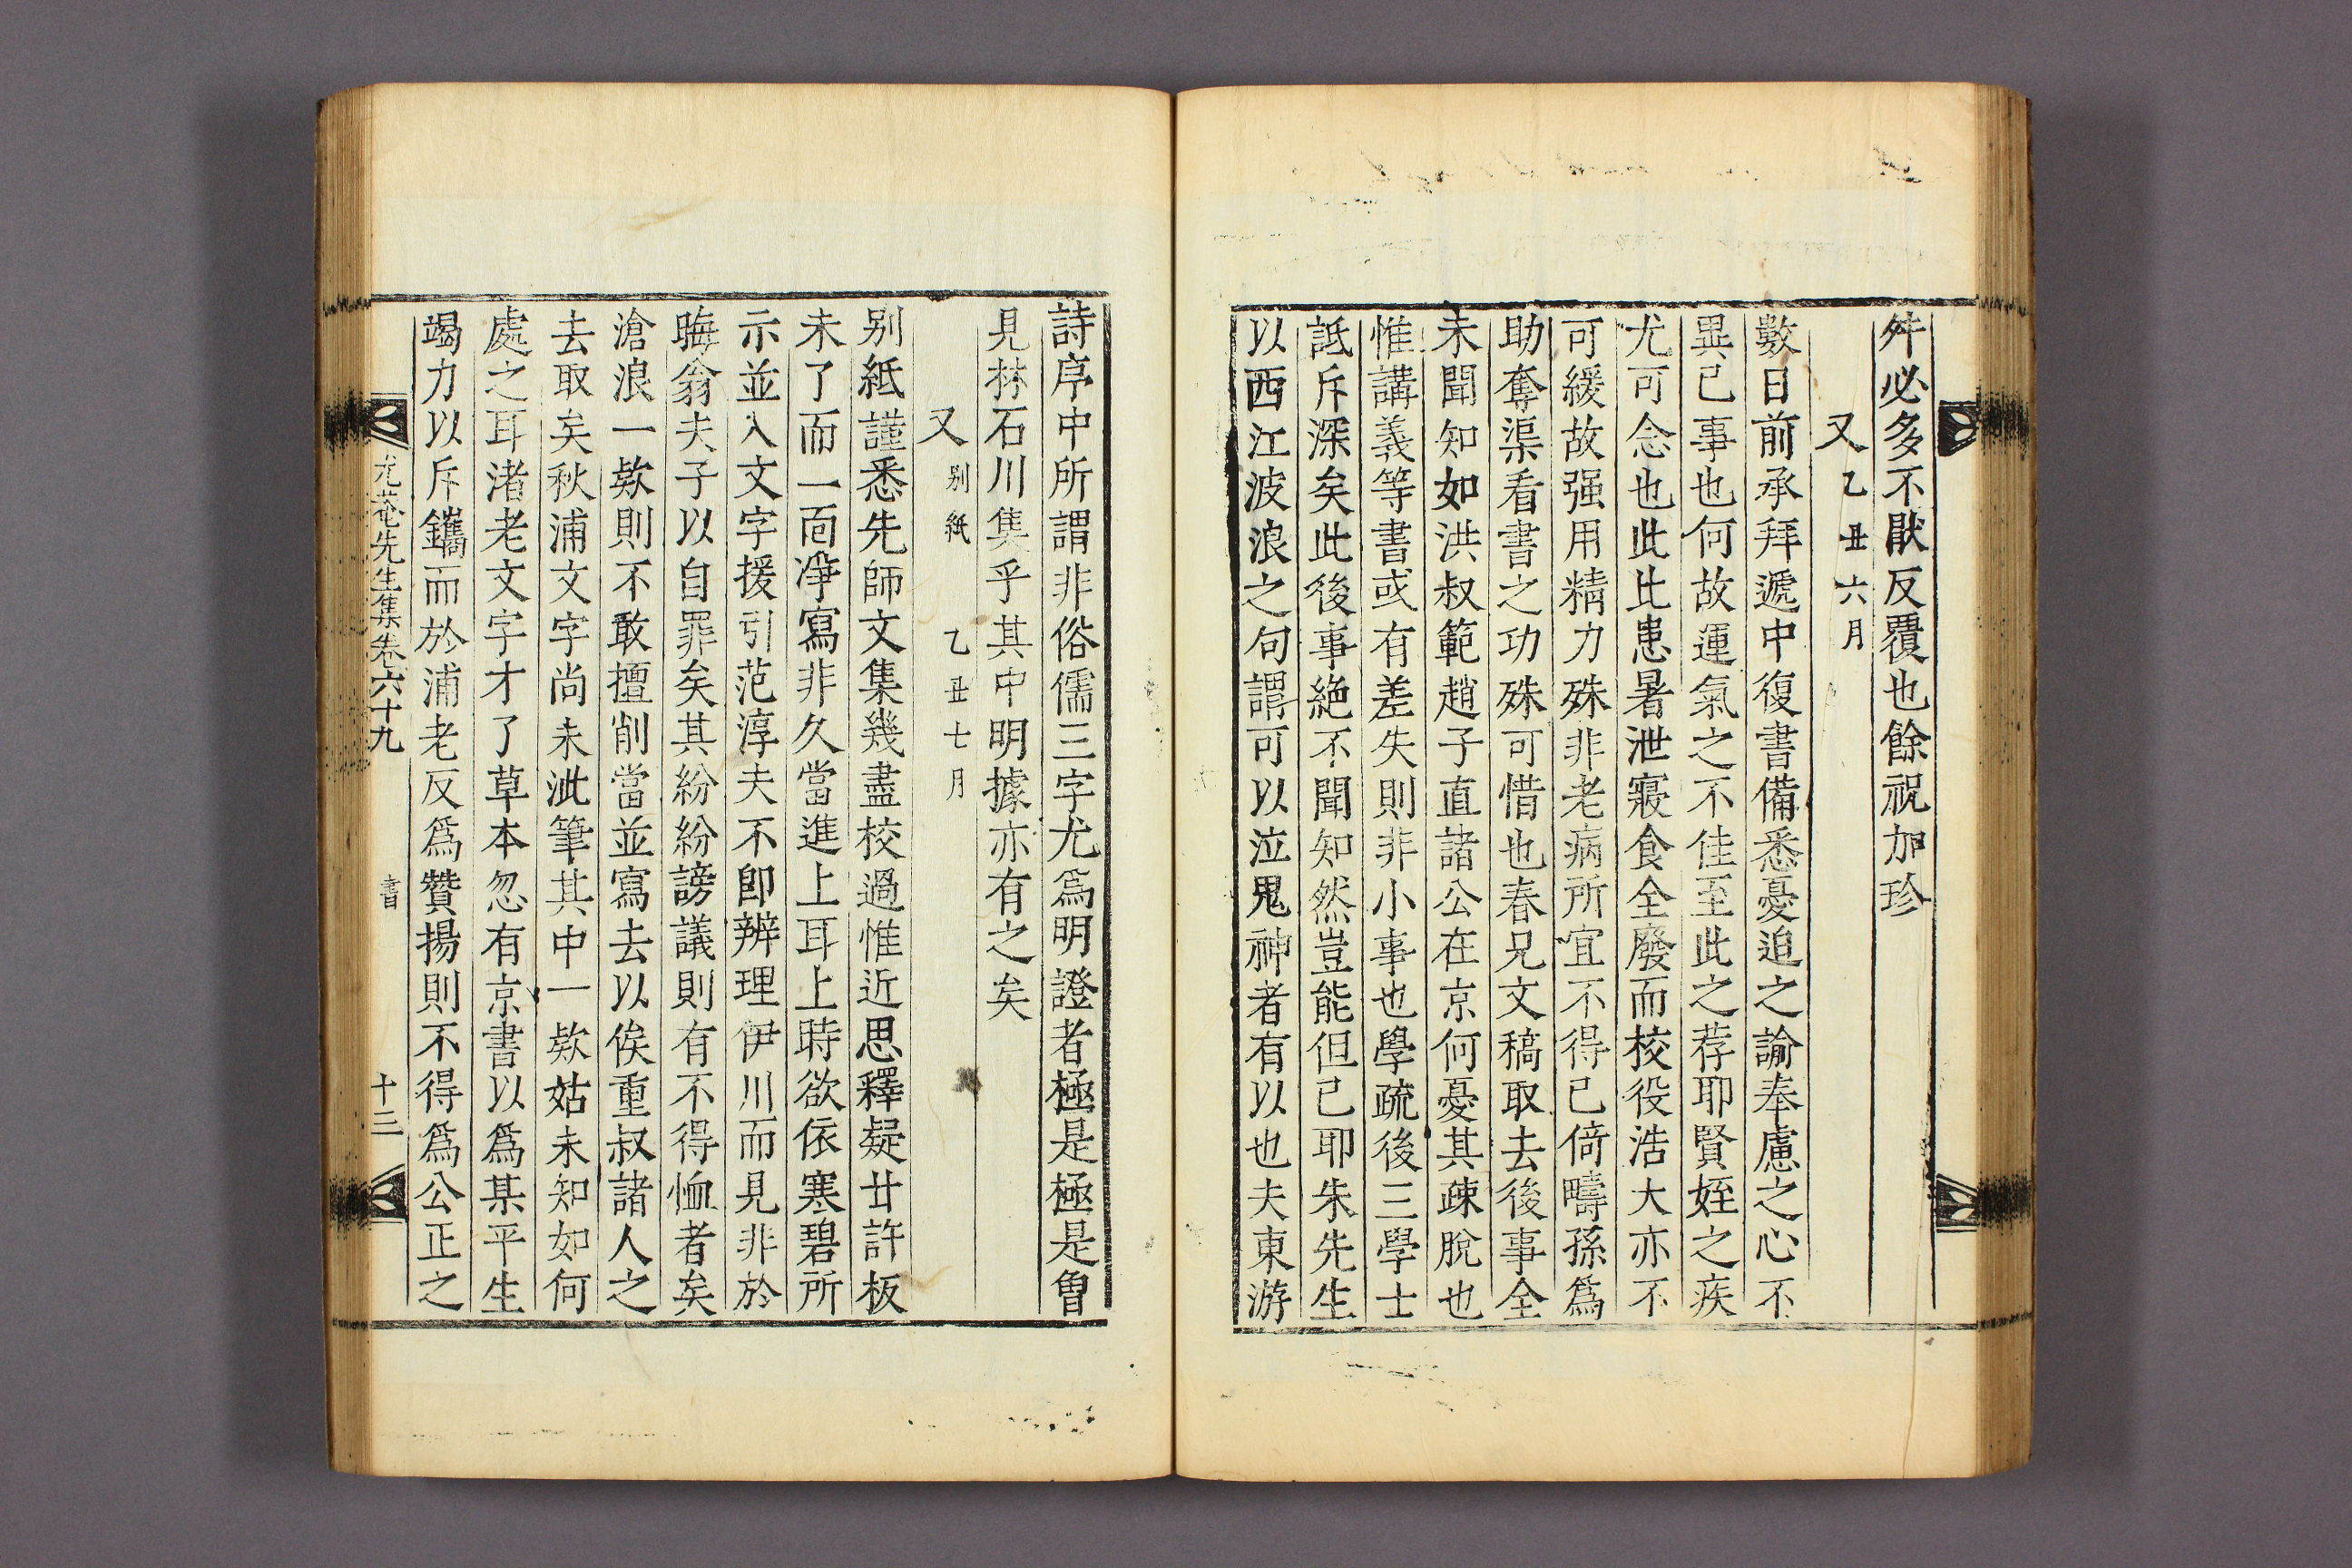 舛必多不厭反覆也餘祝加珍
又乙丑六月
數日前承拜遞中復書備悉憂迫之諭奉慮之心不
異已事也何故運氣之不佳至此之荐耶賢姪之疾
尤可念也此比患暑泄寢食全廢而校役浩大亦不
可緩故强用精力殊非老病所宜不得已倚疇孫爲
助奪渠看書之功殊可惜也春兄文稿取去後事全
未聞知如洪叔範趙子直諸公在京何憂其疎脫也
惟講義等書或有差失則非小事也學疏後三學士
詆斥深矣此後事絶不聞知然豈能但已耶朱先生
以西江波浪之句謂可以泣鬼神者有以也夫東游
詩序中所謂非俗儒三字尤爲明證者極是極是曾
見林石川集乎其中明據亦有之矣
又别紙 乙丑七月
别紙謹悉先師文集幾盡校過惟近思釋疑廿許板
未了而一面凈寫非久當進上耳上時欲依寒碧所
示並入文字援引范淳夫不卽辨理伊川而見非於
晦翁夫子以自罪矣其紛紛謗議則有不得恤者矣
滄浪一欵則不敢擅削當並寫去以俟重叔諸人之
去取矣秋浦文字尚未泚筆其中一欵姑未知如何
處之耳渚老文字才了草本忽有京書以爲某平生
竭力以斥鑴而於浦老反爲贊揚則不得爲公正之
尤菴先生集卷六十九 書 十三